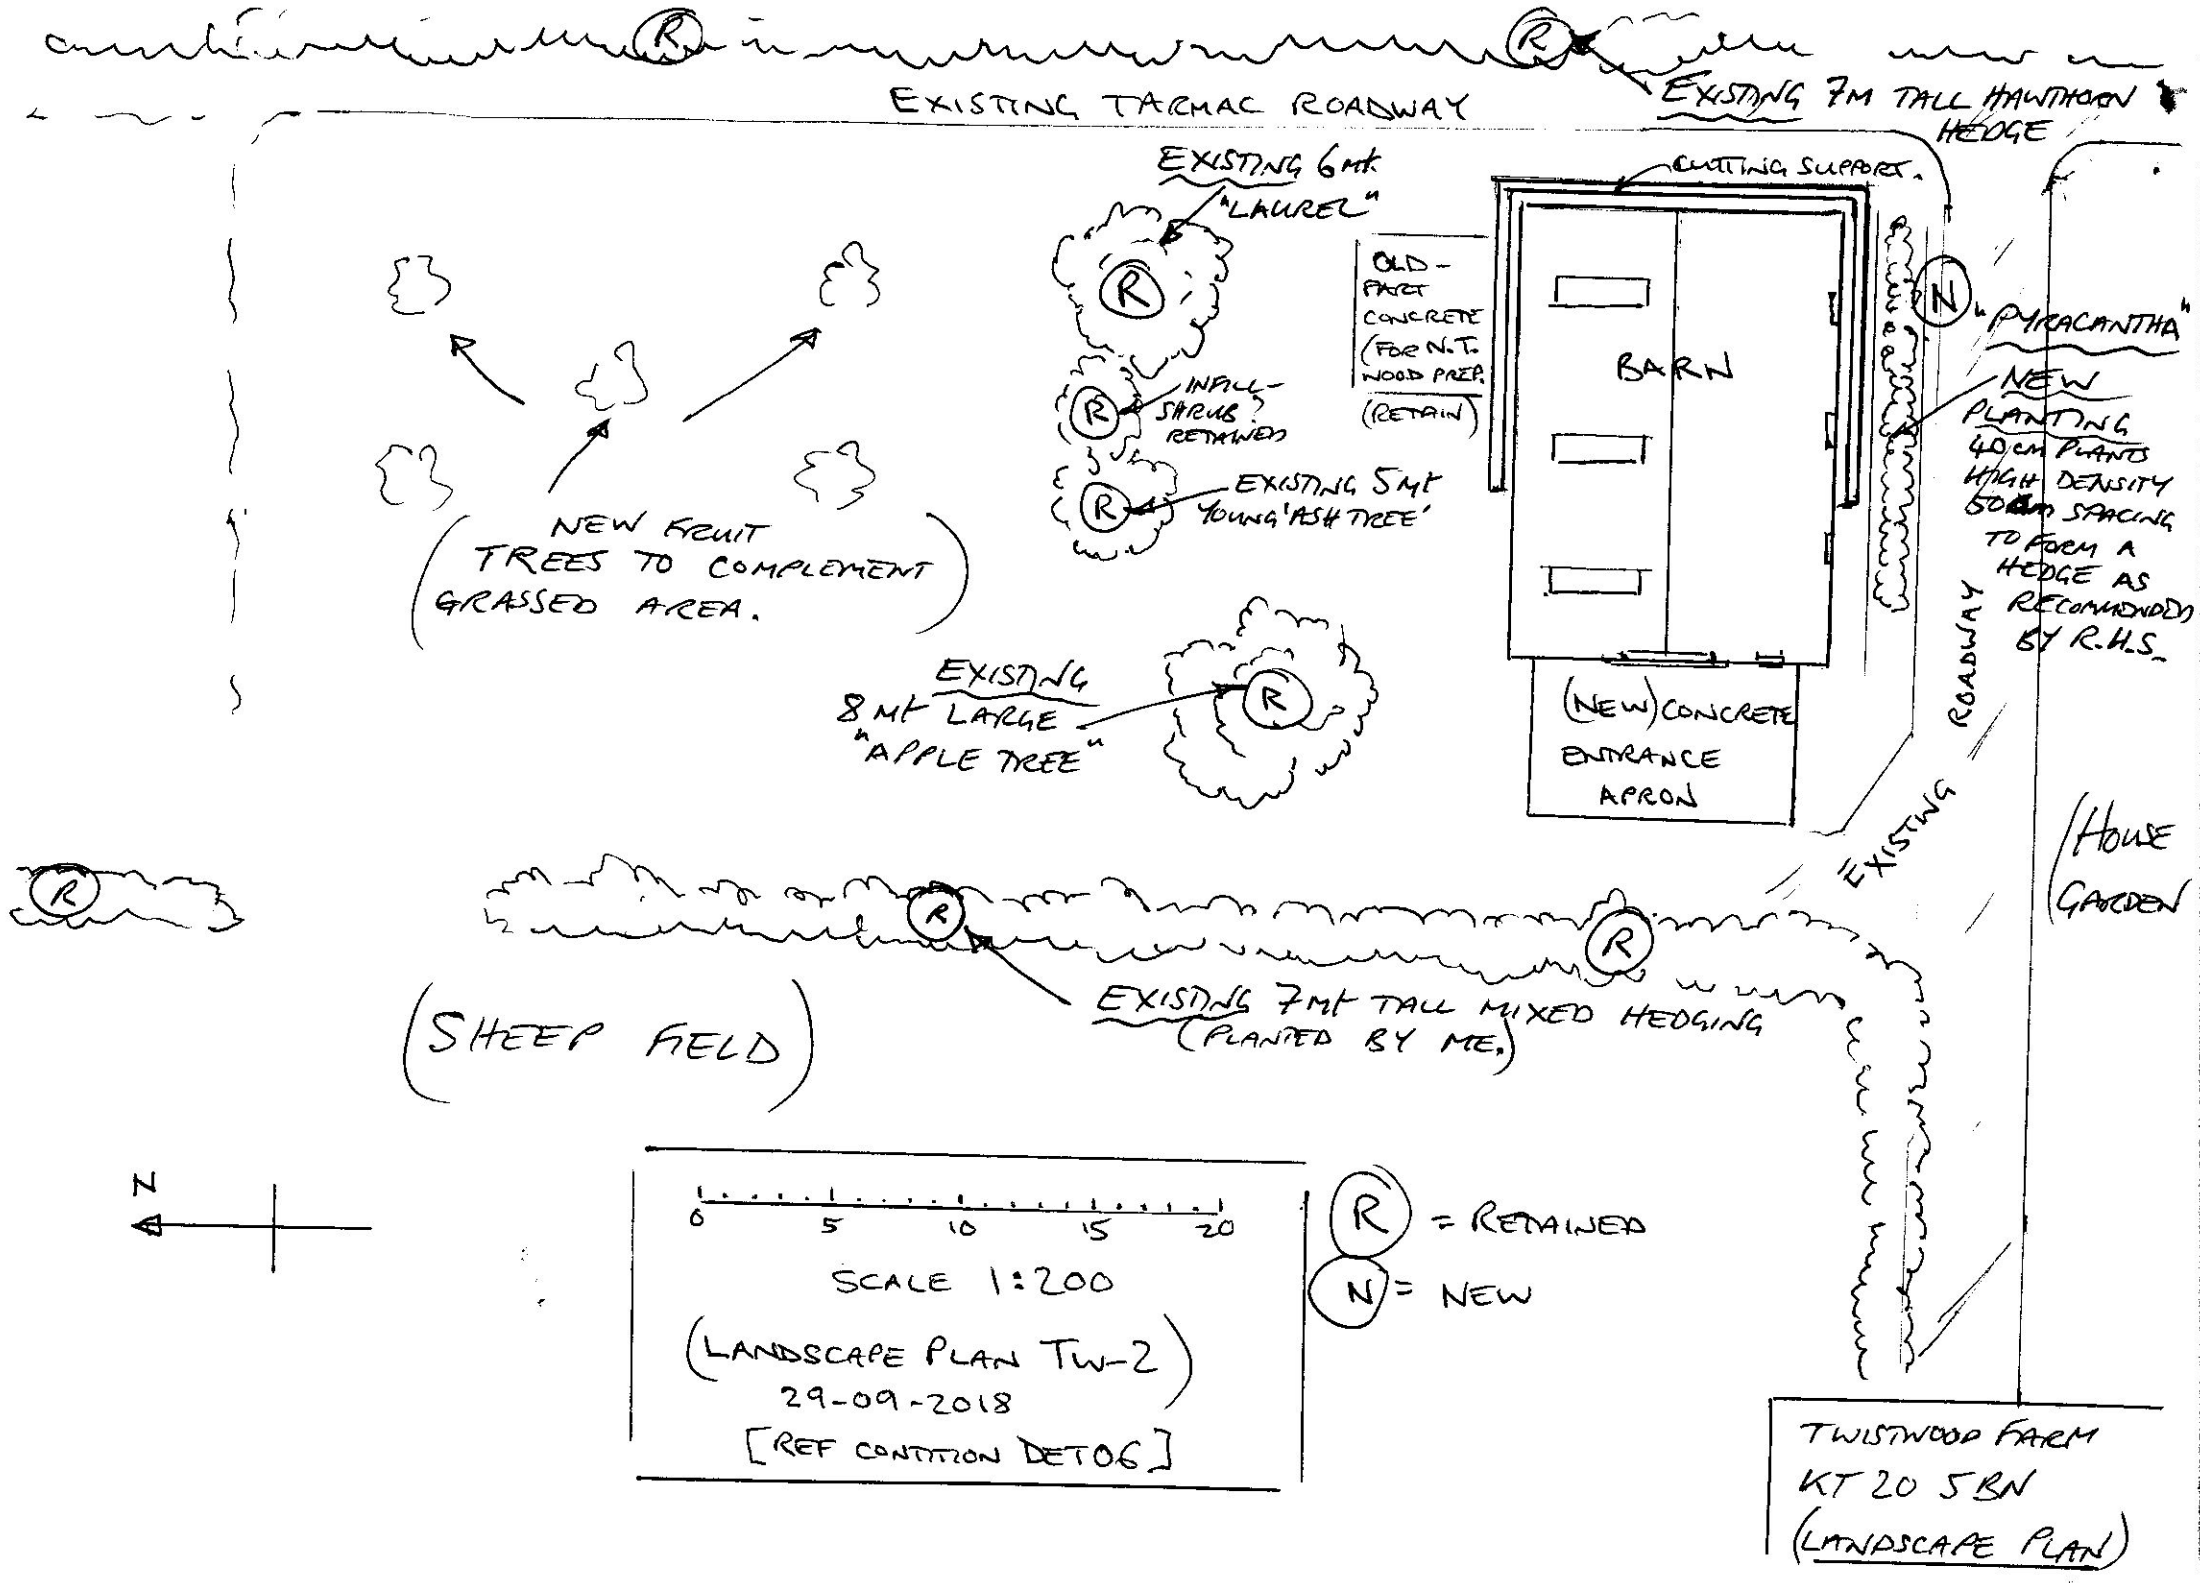 R
R
EXISTING TARMAC ROADWAY
EXISTING 7M TALL HAWTHORN
HEDGE
EXISTING 6Mt
"LAUREL"
R
CUTTING SUPPORT.
OLD-
PART
CONCRETE
(FOR N.T.
WOOD PREP.
(RETAIN)
BARN
N
"PYRACANTHA"
NEW
PLANTING
40cm PLANTS
HIGH DENSITY
50cm SPACING
TO FORM A
HEDGE AS
RECOMMENDED
BY R.H.S.
R
INFILL-
SHRUB?
RETAINED
R
EXISTING 5Mt
YOUNG 'ASH TREE'
(NEW FRUIT
TREES TO COMPLEMENT
GRASSED AREA.)
EXISTING
8Mt LARGE
"APPLE TREE"
R
(NEW) CONCRETE
ENTRANCE
APRON
"EXISTING ROADWAY
(HOUSE
GARDEN
R
R
R
EXISTING 7Mt TALL MIXED HEDGING
(PLANTED BY ME.)
(SHEEP FIELD)
N
0 5 10 15 20
SCALE 1:200
(LANDSCAPE PLAN TW-2)
29-09-2018
[REF CONTITION DET06]
R = RETAINED
N = NEW
TWISTWOOD FARM
KT20 5BN
(LANDSCAPE PLAN)